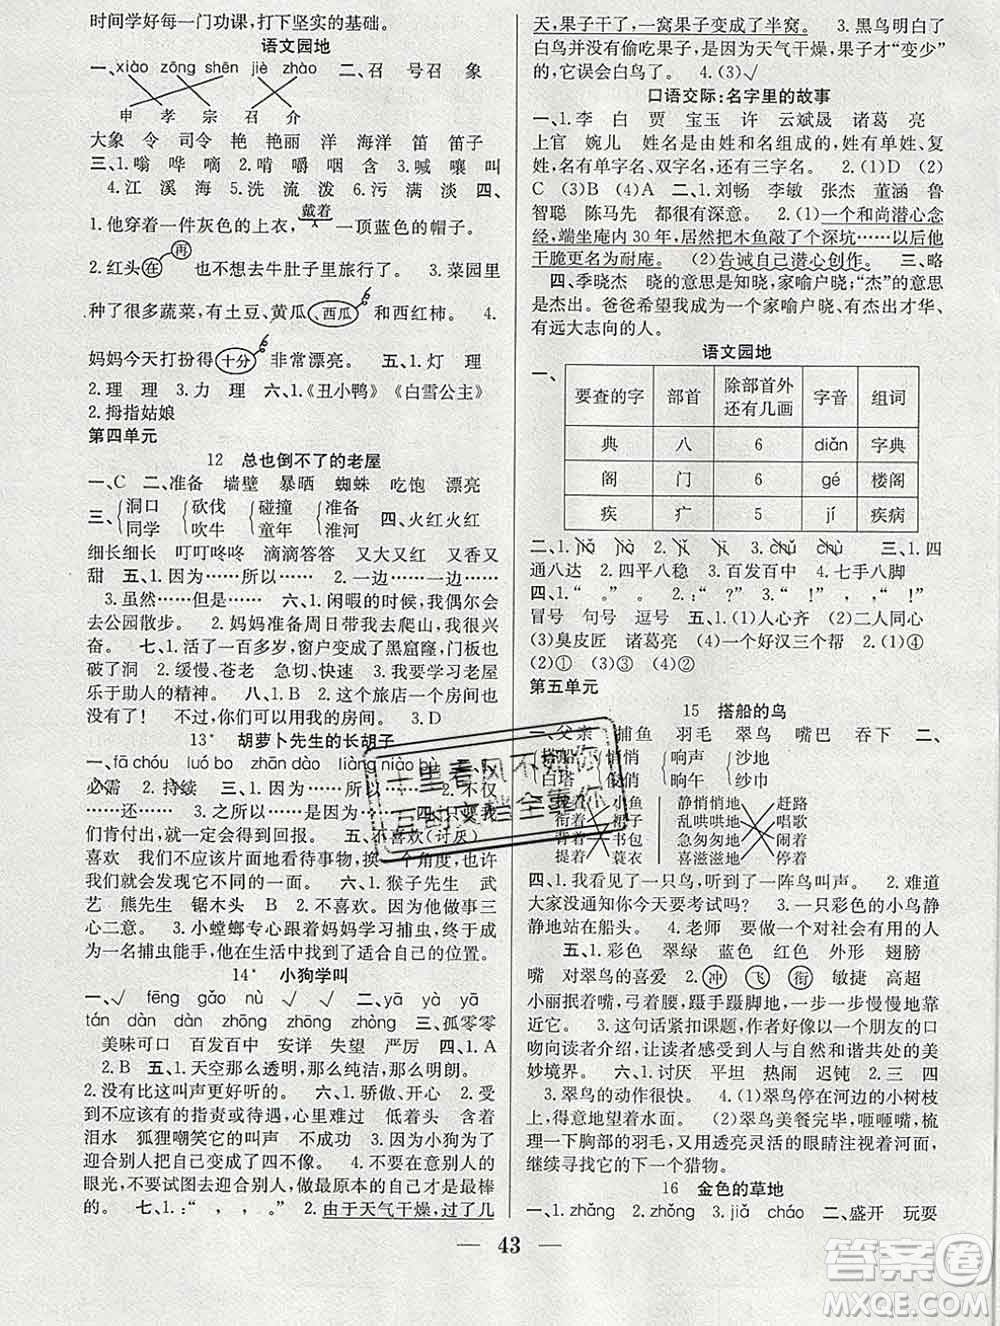 时间学好每一门功课,打下坚实的基础。
语文园地
一、xiào zōng shēn jiè zhào 二、召 号召 象
申 孝 宗 召 介
大象 令 司令 艳 艳丽 洋 海洋 笛 笛子
三、1.嗡 哗 嘀 2.啃 嚼 咽 含 3.喊 嚷 叫
4.江 溪 海 5.洗 流 泼 6.满 淡 四、
戴着
1.他穿着一件灰色的上衣,一顶蓝色的帽子。
再
2.红头在也想不到会牛肚子里旅行了。 3.菜园里
种了很多蔬菜,有土豆、黄瓜、西瓜和西红柿。 4.
妈妈今天打扮得十分非常漂亮。 五、1.灯 理
2.理 理 3.力 理 六、1.《丑小鸭》《白雪公主》
2.拇指姑娘
第四单元
12 总也倒不了的老屋
一、C 二、准备 墙壁 暴晒 蜘蛛 吃饱 漂亮
三、洞口 砍伐 碰撞 准备 四、火红火红
同学 吹牛 童年 淮河
细长细长 叮叮咚咚 滴滴答答 又大又红 又香又
甜 五、1.因为……所以…… 2.一边……一边……
3.虽然……但是…… 六、1.闲暇的时候,我偶尔会
去公园散步。 2.妈妈准备周日带我去爬山,我很兴
奋。 七、1.活了一百多岁,窗户变成了黑窟窿,门板也
破了洞 2.缓慢、苍老 急切、快速 3.我要学习老屋
乐于助人的精神。 八、1.B 2.这个旅店一个房间也
没有了! 不过,你们可以用我的房间。 3.D
13* 胡萝卜先生的长胡子
一、fā chóu luó bo zhān dào liàng niǎo pù 二、1.
必需 2.持续 三、1.因为……所以…… 2.不仅……
还…… 3.之所以……是因为…… 四、只要我
们肯付出,就一定会得到回报。 五、不喜欢(讨厌)
喜欢 我们不应该片面地看事物,换一个角度,也许
我们就能发现它不同的一面。 六、1.猴子先生 武
艺 熊先生 锯木头 2.不喜欢。因为它做事三心
二意。 3.小螳螂专心跟着妈妈学习捕虫,终于成为
一名捕虫高手,他在生活中找到了适合自己的位置。
14* 小狗学叫
一、√ fēng gǎo nù √ 二、yā yà yā
tán dàn dàn zhōng zhōng zhòng 三、孤零零
美味可口 百发百中 安详 失望 严厉 四、1.A
2.B 五、1.天空那么透明,那么纯洁,那么明朗。
2.没有什么比这叫声更好听的 六、1.骄傲、开心 2.
到不应该有的指责或嘲笑 心里难过 低着头 含着
泪水 狐狸嘲笑它的叫声 不成功 3.小狗为了
迎合别人把自己变成了四不像。 4.不要在意别人的
眼光,不要试图去迎合别人,做最原本的自己才是最棒
的。 七、1.:“ , ,。” 2.由于天气干燥,过了几
天,果子干了一些,一窝果子变成了半窝。 3.黑鸟的
白鸟并没有偷吃果子,是因为天气干燥,果子才“变少”
的,它误会白鸟了。 4.(3)√
口语交际:名字里的故事
一、1.李 白 贾 宝玉 许 云斌晟 诸葛 亮
上官 婉儿 姓名是由姓和名组成的,姓有单姓、复
姓,名有单字名、双字名,还有三字名。 2.(1)D (2)
C (3)B (4)A 二、1.刘畅 李敏 张杰 董涵 鲁
智聪 陈马先 都很有深意。 2.(1)一个和尚潜心念
经,端坐庵内30年,居然把木鱼敲了个深坑……以后他
干脆更名为耐庵。 (2)告诫自己潜心创作。 三、略
四、季晓杰 晓的意思是知晓,家喻户晓;“杰”的意思
是杰出。爸爸希望我成为一个家喻户晓,有杰出才华、
有远大志向的人。
语文园地
一、
要查的字 部首 除部首外还有几画 字音 组词
典 八 6 diǎn 字典
阁 门 6 gé 楼阁
疾 疒 5 jí 疾病
二、1.jiǎ jiǎo 2.jì jǐ 3.chú chǔ 三、1.四
通八达 2.四平八稳 3.百发百中 4.七手八脚
四、1.“ 。” 。 2.:“ ?” 3.“ !” ,“ !”
冒号 句号 逗号 五、1.(1)人心齐 (2)二人同心
(3)臭皮匠 诸葛亮 (4)一个好汉三个帮 2.(1)④
(2)① (3)⑥ (4)⑤
第五单元
15 搭船的鸟
一、父亲 捕鱼 羽毛 翠鸟 嘴巴 吞下 二、
搭船 悄悄 响声 沙地
白塔 俊俏 晌午 纱巾
小鱼 静悄悄地 赶路
衔着 裙子 乱哄哄地 唱歌
背着 书包 急匆匆地 闹着
提着 蓑衣 喜滋滋地 干活
四、1.我看见了一只鸟,听到了一阵鸟叫声。 2.难道
大家没通知你今天要考试吗? 3.一只彩色的小鸟静
静地站在船头。 4.老师 要做一个对社会有用的人。
五、1.彩色 翠绿 蓝色 红色 外形 翅膀
嘴 对翠鸟的喜爱 2.冲 飞 衔 敏捷 高超
小丽抿着嘴,弓着腰,蹑手蹑脚地,一步一步慢慢地靠
近它。 3.这句话紧扣课题,作者好像以一个朋友的口
吻向读者介绍,让我们感受到人与自然和谐共处的美
妙境界。 六、1.讨厌 平坦 热闹 迟钝 2.三 四
3.翠鸟的动作很快。 4.(1)翠鸟停在河边的小树枝
上,好奇地望着水面。 (2)翠鸟美餐完毕,咂咂嘴,梳
理一下胸部的羽毛,又用透亮灵活的眼睛注视着河面,
继续寻找它的下一个猎物。
16 金色的草地
一、1.zhǎng 2.zhōng 3.jiǎ cháo 二、盛开 玩耍
43
十里春风不如你
豆的文档全靠你
答案圈
MXQE.COM